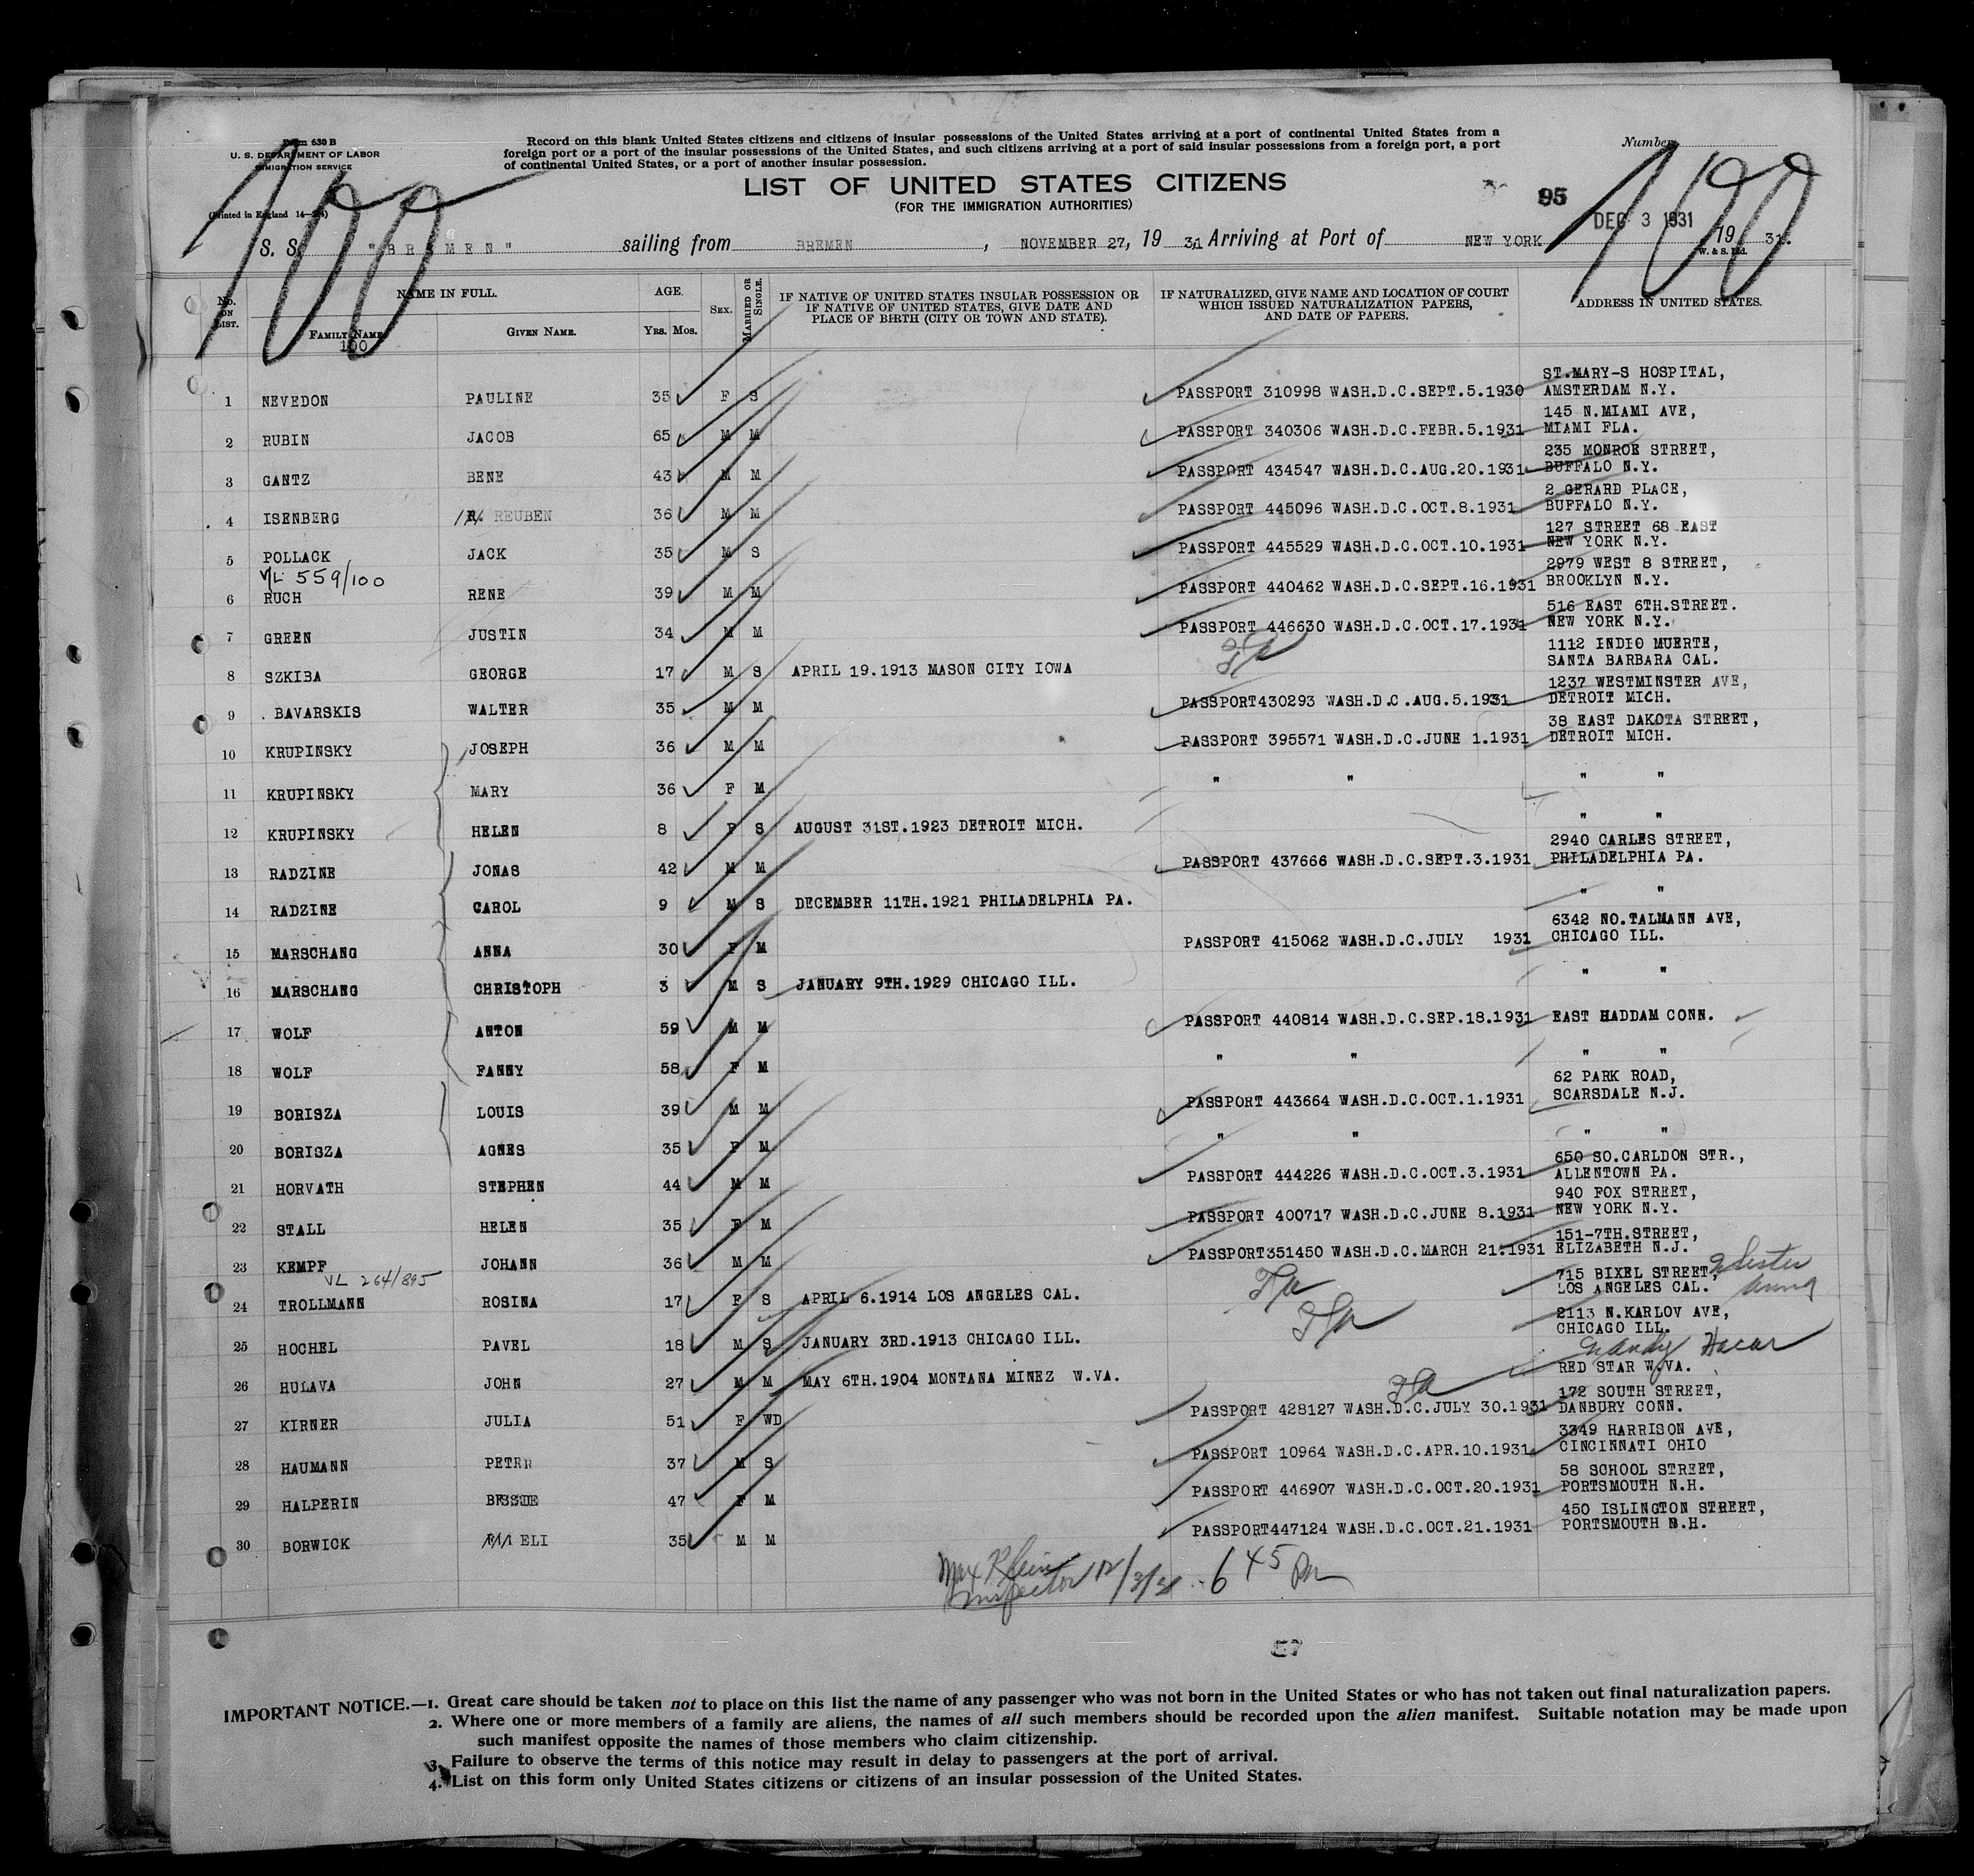 Form 630 B
U. S. DEPARTMENT OF LABOR
IMMIGRATION SERVICE
(Printed in England 14—
Record on this blank United States citizens and citizens of insular possessions of the United States arriving at a port of continental United States from a
foreign port or a port of the insular possessions of the United States, and such citizens arriving at a port of said insular possessions from a foreign port, a port
of continental United States, or a port of another insular possession.
Number
LIST OF UNITED STATES CITIZENS
(FOR THE IMMIGRATION AUTHORITIES)
95
100
100
DEC 3 1931
S. S. "BREMEN" sailing from BREMEN, NOVEMBER 27, 19 31 Arriving at Port of NEW YORK 19 31.
W. & S. Ltd.
No. ON LIST.
NAME IN FULL.
FAMILY NAME
GIVEN NAME.
AGE.
YRS. MOS.
SEX.
MARRIED OR SINGLE.
IF NATIVE OF UNITED STATES INSULAR POSSESSION OR
IF NATIVE OF UNITED STATES, GIVE DATE AND
PLACE OF BIRTH (CITY OR TOWN AND STATE).
IF NATURALIZED, GIVE NAME AND LOCATION OF COURT
WHICH ISSUED NATURALIZATION PAPERS,
AND DATE OF PAPERS.
ADDRESS IN UNITED STATES.
100
1 NEVEDON PAULINE 35 F S PASSPORT 310998 WASH.D.C.SEPT.5.1930 ST.MARY-S HOSPITAL,
AMSTERDAM N.Y.
2 RUBIN JACOB 65 M M PASSPORT 340306 WASH.D.C.FEBR.5.1931 145 N.MIAMI AVE,
MIAMI FLA.
3 GANTZ BENE 43 M M PASSPORT 434547 WASH.D.C.AUG.20.1931 235 MONROE STREET,
BUFFALO N.Y.
4 ISENBERG REUBEN 36 M M PASSPORT 445096 WASH.D.C.OCT.8.1931 2 GERARD PLACE,
BUFFALO N.Y.
5 POLLACK JACK 35 M S PASSPORT 445529 WASH.D.C.OCT.10.1931 127 STREET 68 EAST
NEW YORK N.Y.
VL 559/100
6 RUCH RENE 39 M M PASSPORT 440462 WASH.D.C.SEPT.16.1931 2979 WEST 8 STREET,
BROOKLYN N.Y.
7 GREEN JUSTIN 34 M M PASSPORT 446630 WASH.D.C.OCT.17.1931 516 EAST 6TH.STREET.
NEW YORK N.Y.
8 SZKIBA GEORGE 17 M S APRIL 19.1913 MASON CITY IOWA 1112 INDIO MUERTE,
SANTA BARBARA CAL.
9 BAVARSKIS WALTER 35 M M PASSPORT430293 WASH.D.C.AUG.5.1931 1237 WESTMINSTER AVE,
DETROIT MICH.
10 KRUPINSKY JOSEPH 36 M M PASSPORT 395571 WASH.D.C.JUNE 1.1931 38 EAST DAKOTA STREET,
DETROIT MICH.
11 KRUPINSKY MARY 36 F M " " " "
12 KRUPINSKY HELEN 8 F S AUGUST 31ST.1923 DETROIT MICH. " "
13 RADZINE JONAS 42 M M PASSPORT 437666 WASH.D.C.SEPT.3.1931 2940 CARLES STREET,
PHILADELPHIA PA.
14 RADZINE CAROL 9 M S DECEMBER 11TH.1921 PHILADELPHIA PA. " "
15 MARSCHANG ANNA 30 F M PASSPORT 415062 WASH.D.C.JULY 1931 6342 NO.TALMANN AVE,
CHICAGO ILL.
16 MARSCHANG CHRISTOPH 3 M S JANUARY 9TH.1929 CHICAGO ILL. " "
17 WOLF ANTON 59 M M PASSPORT 440814 WASH.D.C.SEP.18.1931 EAST HADDAM CONN.
18 WOLF FANNY 58 F M " " " "
19 BORISZA LOUIS 39 M M PASSPORT 443664 WASH.D.C.OCT.1.1931 62 PARK ROAD,
SCARSDALE N.J.
20 BORISZA AGNES 35 F M " " " "
21 HORVATH STEPHEN 44 M M PASSPORT 444226 WASH.D.C.OCT.3.1931 650 SO.CARLDON STR.,
ALLENTOWN PA.
22 STALL HELEN 35 F M PASSPORT 400717 WASH.D.C.JUNE 8.1931 940 FOX STREET,
NEW YORK N.Y.
23 KEMPF JOHANN 36 M M PASSPORT351450 WASH.D.C.MARCH 21.1931 151-7TH.STREET,
ELIZABETH N.J.
VL 264/895
24 TROLLMANN ROSINA 17 F S APRIL 6.1914 LOS ANGELES CAL. 715 BIXEL STREET,
LOS ANGELES CAL.
25 HOCHEL PAVEL 18 M S JANUARY 3RD.1913 CHICAGO ILL. 2113 N.KARLOV AVE,
CHICAGO ILL.
26 HULAVA JOHN 27 M M MAY 6TH.1904 MONTANA MINEZ W.VA. RED STAR W.VA.
27 KIRNER JULIA 51 F WD PASSPORT 428127 WASH.D.C.JULY 30.1931 172 SOUTH STREET,
DANBURY CONN.
28 HAUMANN PETER 37 M S PASSPORT 10964 WASH.D.C.APR.10.1931 3349 HARRISON AVE,
CINCINNATI OHIO
29 HALPERIN BESSIE 47 F M PASSPORT 446907 WASH.D.C.OCT.20.1931 58 SCHOOL STREET,
PORTSMOUTH N.H.
30 BORWICK ELI 35 M M PASSPORT447124 WASH.D.C.OCT.21.1931 450 ISLINGTON STREET,
PORTSMOUTH N.H.
Max Klein
Inspector 12/3/31 6 45 Pm
57
IMPORTANT NOTICE.—1. Great care should be taken not to place on this list the name of any passenger who was not born in the United States or who has not taken out final naturalization papers.
2. Where one or more members of a family are aliens, the names of all such members should be recorded upon the alien manifest. Suitable notation may be made upon
such manifest opposite the names of those members who claim citizenship.
3. Failure to observe the terms of this notice may result in delay to passengers at the port of arrival.
4. List on this form only United States citizens or citizens of an insular possession of the United States.